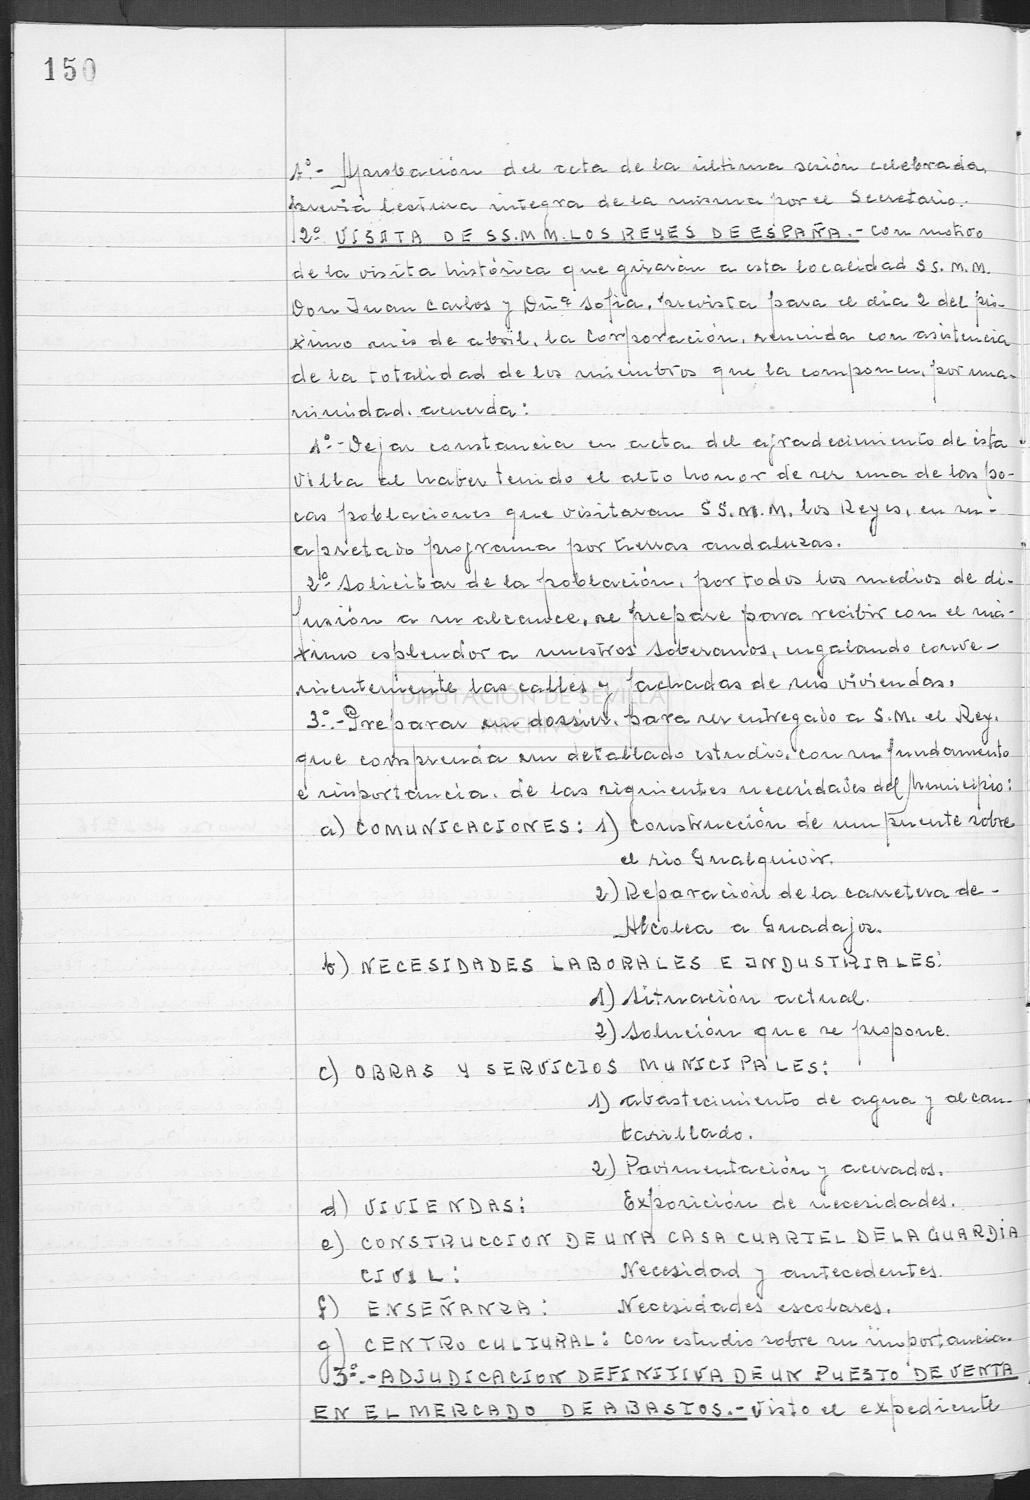 150
1º.- Aprobación del acta de la última sesión celebrada,
previa lectura integra de la misma por el Secretario.
2º VISITA DE SS.MM. LOS REYES DE ESPAÑA.- Con motivo
de la visita histórica que girarán a esta localidad SS.M.M.
Don Juan Carlos y Dñª Sofia, prevista para el día 2 del pró-
ximo mes de abril, la Corporación, reunida con asistencia
de la totalidad de los miembros que la componen, por una-
nimidad, acuerda:
1º.- Dejar constancia en acta del agradecimiento de esta
Villa al haber tenido el alto honor de ser una de las po-
cas poblaciones que visitaran SS.M.M. los Reyes, en su -
apretado programa por tierras andaluzas.
2º- Solicitar de la población, por todos los medios de di-
fusión a su alcance, se prepare para recibir con el má-
ximo esplendor a nuestros Soberanos, engalando conve-
nientemente las calles y fachadas de sus viviendas.
DIPUTACIÓN DE SEVILLA
ARCHIVO
3º.- Preparar un dossier, para ser entregado a S.M. el Rey,
que comprenda un detallado estudio, con su fundamento
e importancia, de las siguientes necesidades del Municipio:
a) COMUNICACIONES: 1) Construcción de un puente sobre
el rio Gualquivir.
2) Reparación de la carretera de -
Alcolea a Guadajoz.
b) NECESIDADES LABORALES E INDUSTRIALES:
1) Situación actual.
2) Solución que se propone.
c) OBRAS Y SERVICIOS MUNICIPALES:
1) Abastecimiento de agua y alcan-
tarillado.
2) Pavimentación y acerados.
d) VIVIENDAS: Exposición de necesidades.
e) CONSTRUCCION DE UNA CASA CUARTEL DE LA GUARDIA
CIVIL: Necesidad y antecedentes.
f) ENSEÑANZA: Necesidades escolares.
g) CENTRO CULTURAL: Con estudio sobre su importancia.
3º.- ADJUDICACION DEFINITIVA DE UN PUESTO DE VENTA
EN EL MERCADO DE ABASTOS.- Visto el expediente